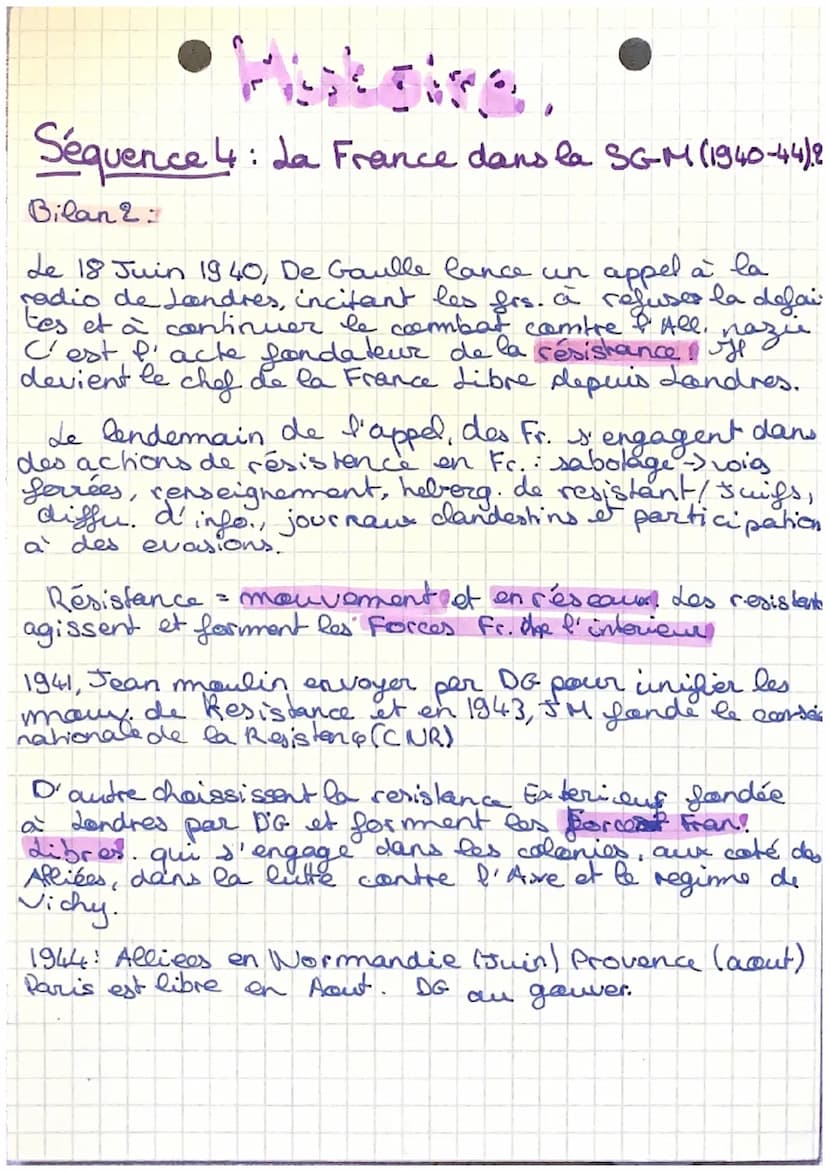 Histoire.
Séquence 4 : La France dans la SGM (1940-44).2
Bilan 2 :
Le 18 Juin 1940, De Gaulle lance un appel à la
radio de Londres, incitant les frs. à refuser la defai
tes et à continuer le coembat comtre l'All. nazie
C'est l'acte fondateur de la résistance. Il
devient le chef de la France Libre depuis Londres.
Le lendemain de l'appel, des Fr. s'engagent dans
des actions de résistence en Fr. : sabotage → voies
ferrées, renseignement, heberg. de resistant/Juifs,
diffu. d'info., journaux clandestins et participation
à des evasions.
Résistance = mouvement et en réseaux. Les resistants
agissent et forment les Forces Fr. de l'interieur
1941, Jean moulin envoyer par DG pour unifier les
mouv. de Resistance et en 1943, JM fonde le conseil
nationale de la Resistence (CNR)
D'autre choississent la resistance Exterieur fondée
à Londres par DG et forment les Forces Fran.
Libres. qui s'engage dans les colonies, aux coté des
Alliées, dans la lutte contre l'Axe et le regime de
Vichy.
1944 : Alliees en Normandie (Juin) Provence (aout)
Paris est libre en Aout. DG au gouver.